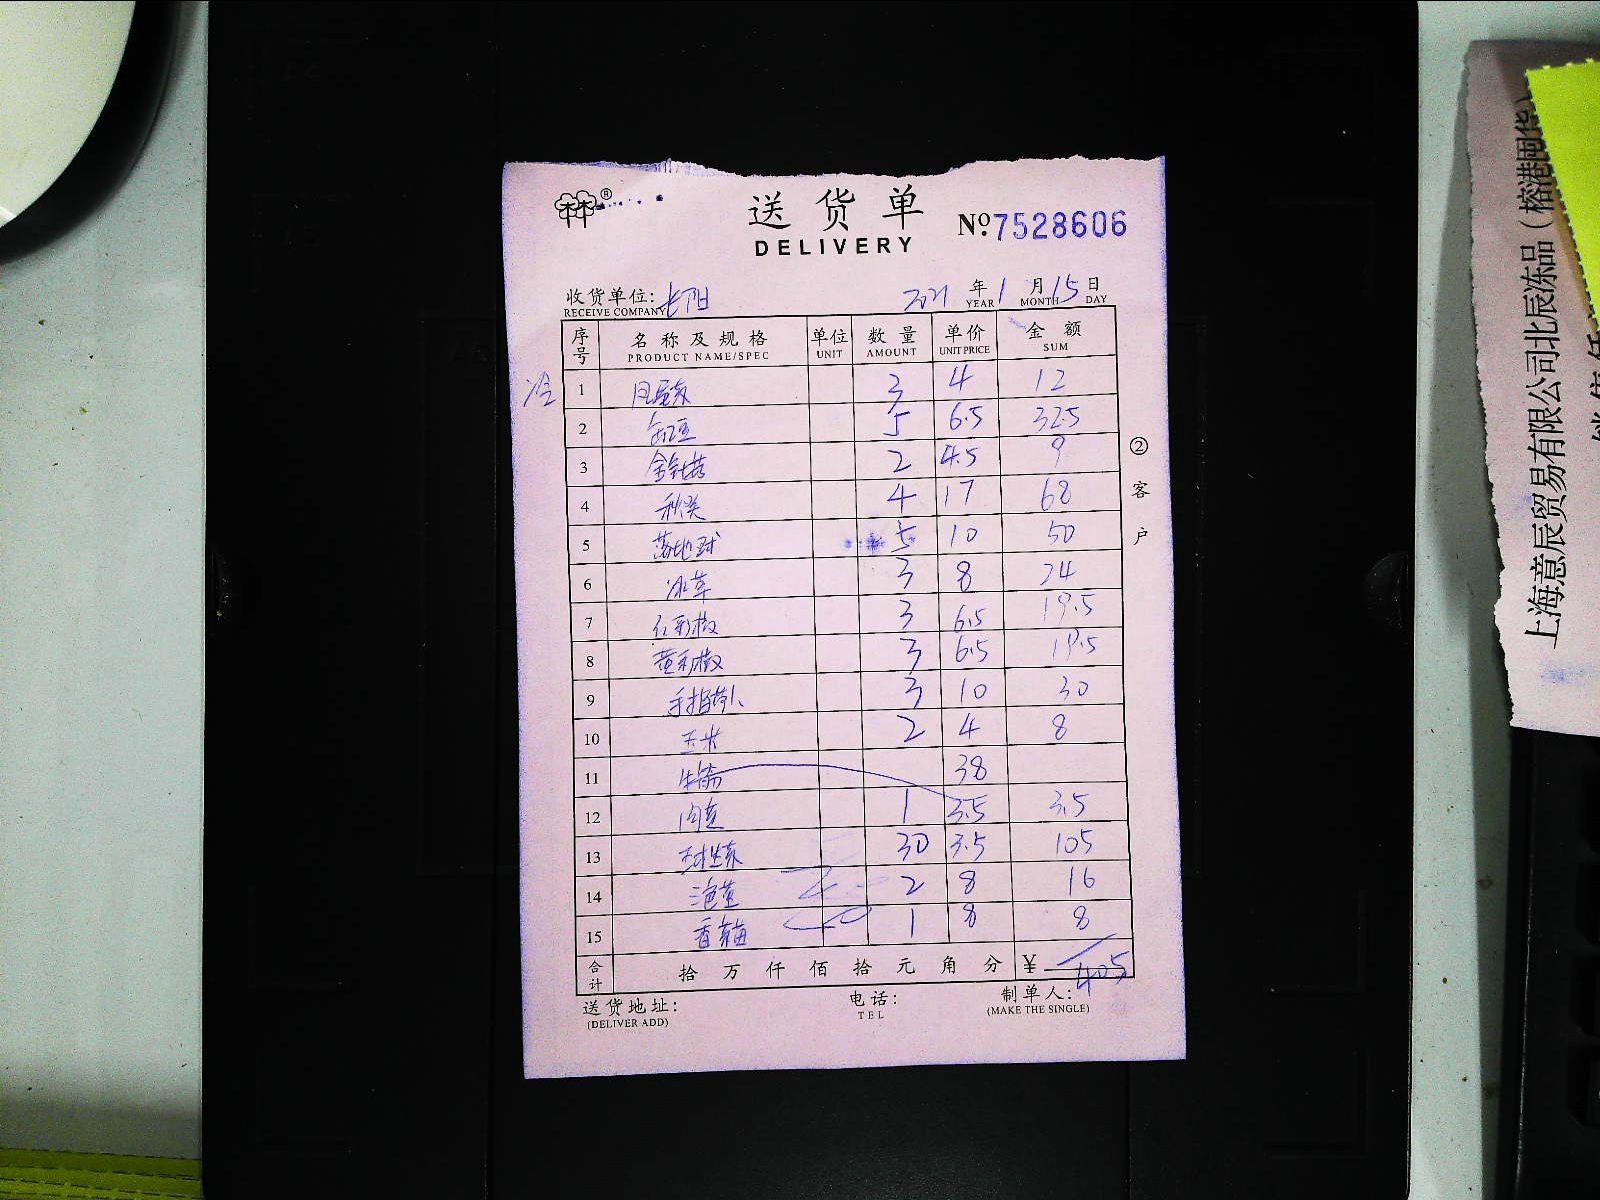 送货单
DELIVERY
№ 7528606
收货单位: 长阳 2021 年 1 月 15 日
RECEIVE COMPANY YEAR MONTH DAY
序号 名称及规格 单位 数量 单价 金额
PRODUCT NAME/SPEC UNIT AMOUNT UNIT PRICE SUM
冷 1 3 4 12
2 5 6.5 32.5
3 金针菇 2 4.5 9
4 秋葵 4 17 68
5 落地球 5 10 50
6 冰草 3 8 24
7 红彩椒 3 6.5 19.5
8 黄彩椒 3 6.5 19.5
9 手指萝卜 3 10 30
10 玉米 2 4 8
11 38
12 1 3.5 3.5
13 球生菜 30 3.5 105
14 2 8 16
15 1 8 8
合计 拾 万 仟 佰 拾 元 角 分 ¥ 405
送货地址: 电话: 制单人:
(DELIVER ADD) TEL (MAKE THE SINGLE)
②客户
上海薏辰贸易有限公司北辰冻品（榕港囤货）